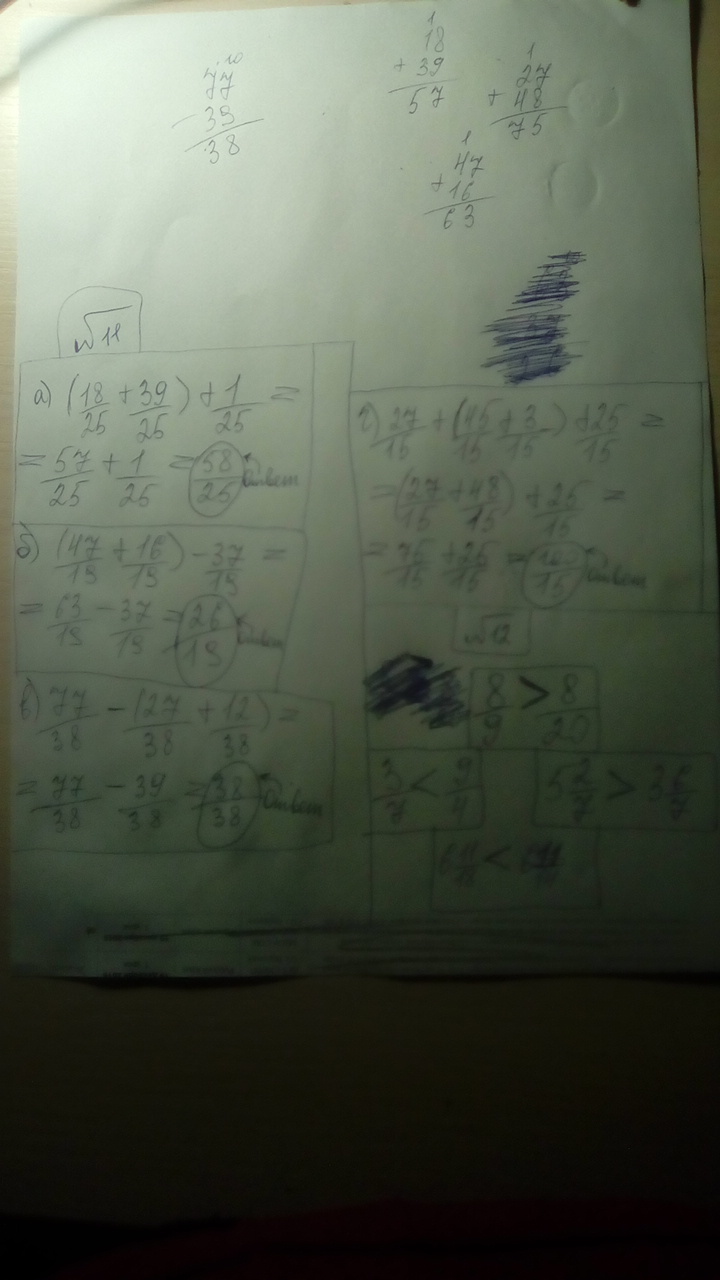 77
39
38
1
18
+ 39
57
1
27
+ 48
75
1
47
+ 16
63
№11
а) (18/25 + 39/25) + 1/25 =
= 57/25 + 1/25 = 58/25 Ответ
б) (47/19 + 16/19) - 37/19 =
= 63/19 - 37/19 = 26/19 Ответ
в) 77/38 - (27/38 + 12/38) =
= 77/38 - 39/38 = 38/38 Ответ
г) 27/15 + (45/15 + 3/15) + 25/15 =
= (27/15 + 48/15) + 25/15 =
= 75/15 + 25/15 = 100/15 Ответ
№12
8/9 > 8/20
3/7 < 9/4
5 2/7 > 3 6/7